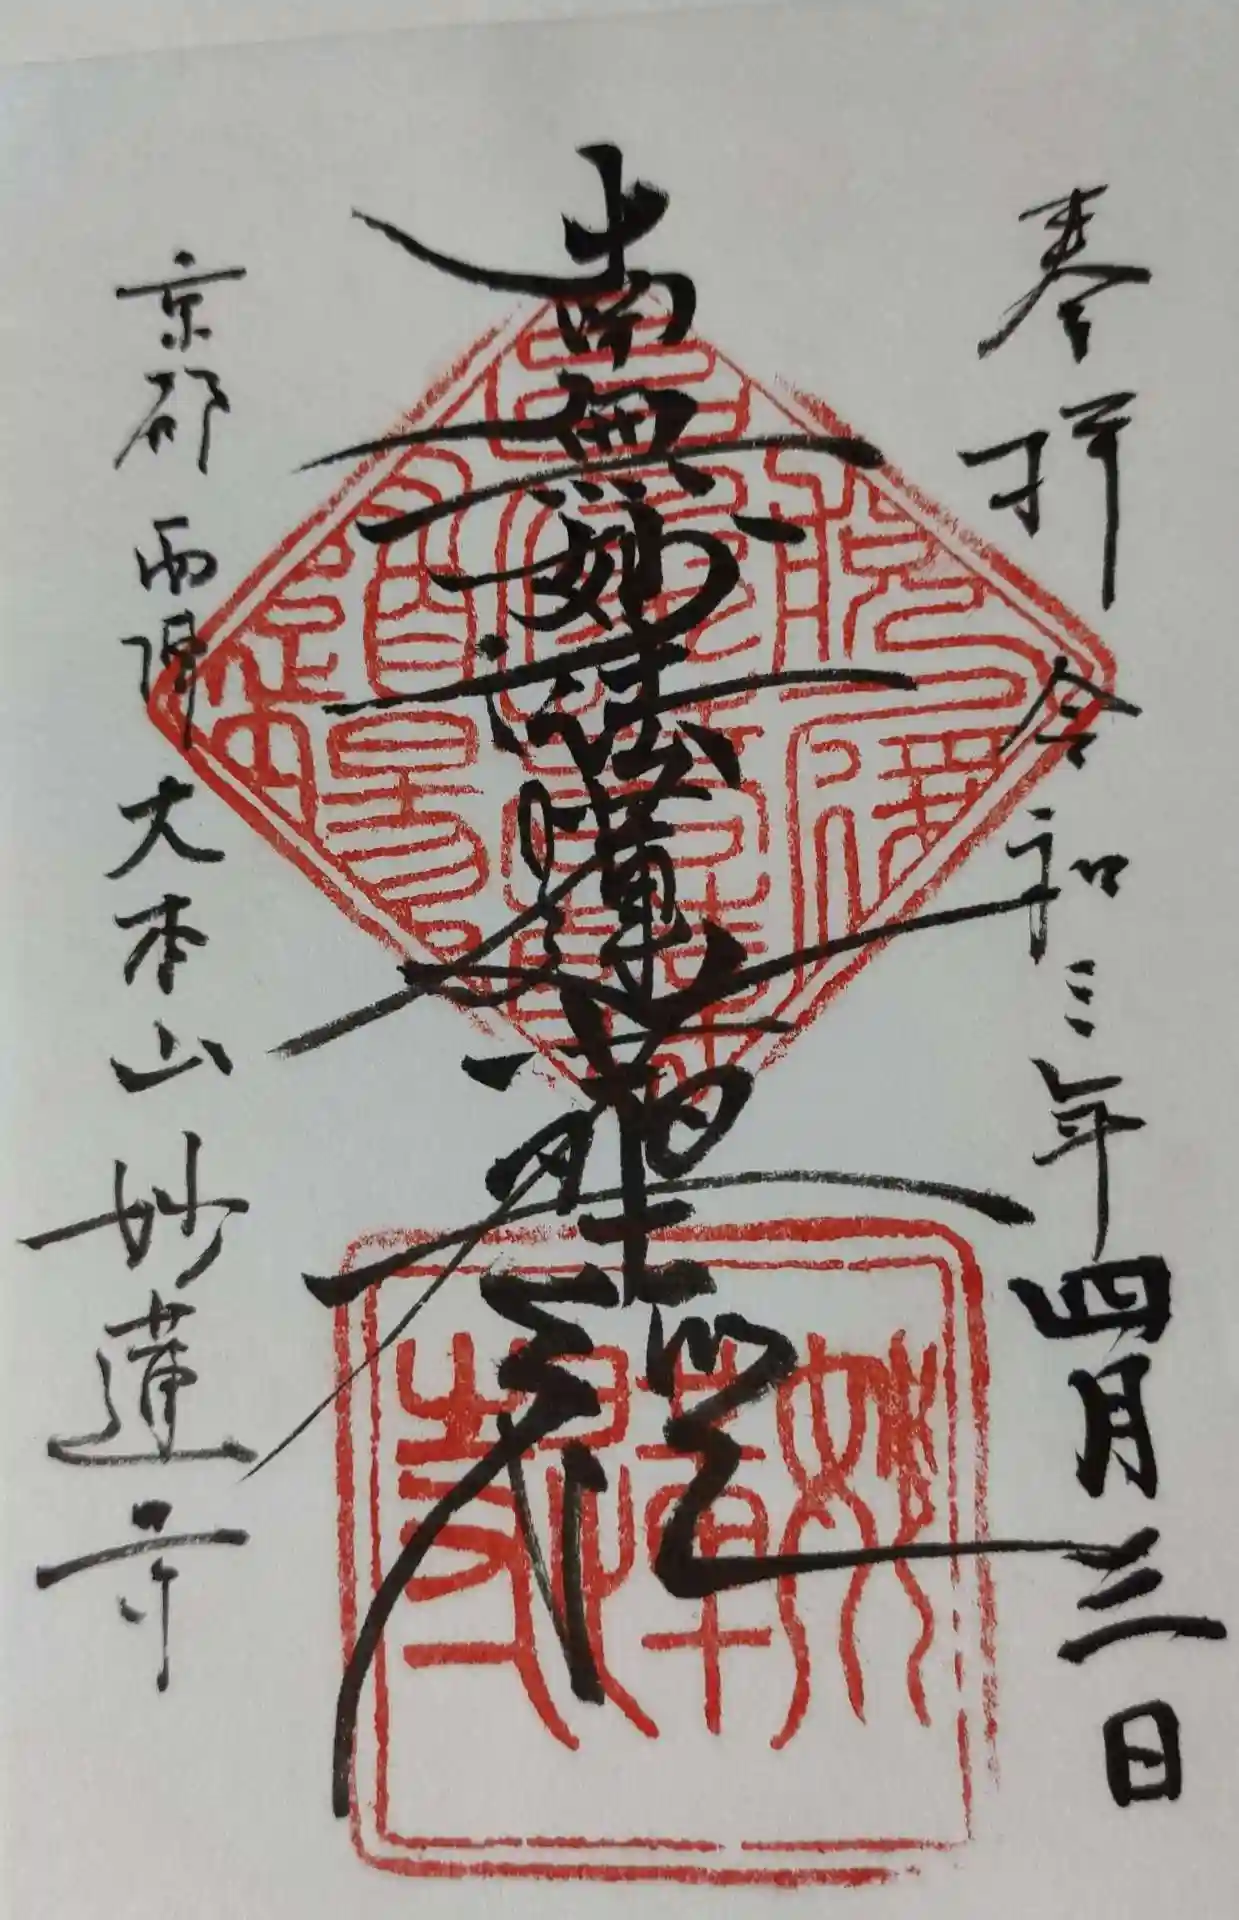 奉拝 令和三年四月三日
南無妙法蓮華經
京都 西陣 大本山 妙蓮寺
妙蓮寺